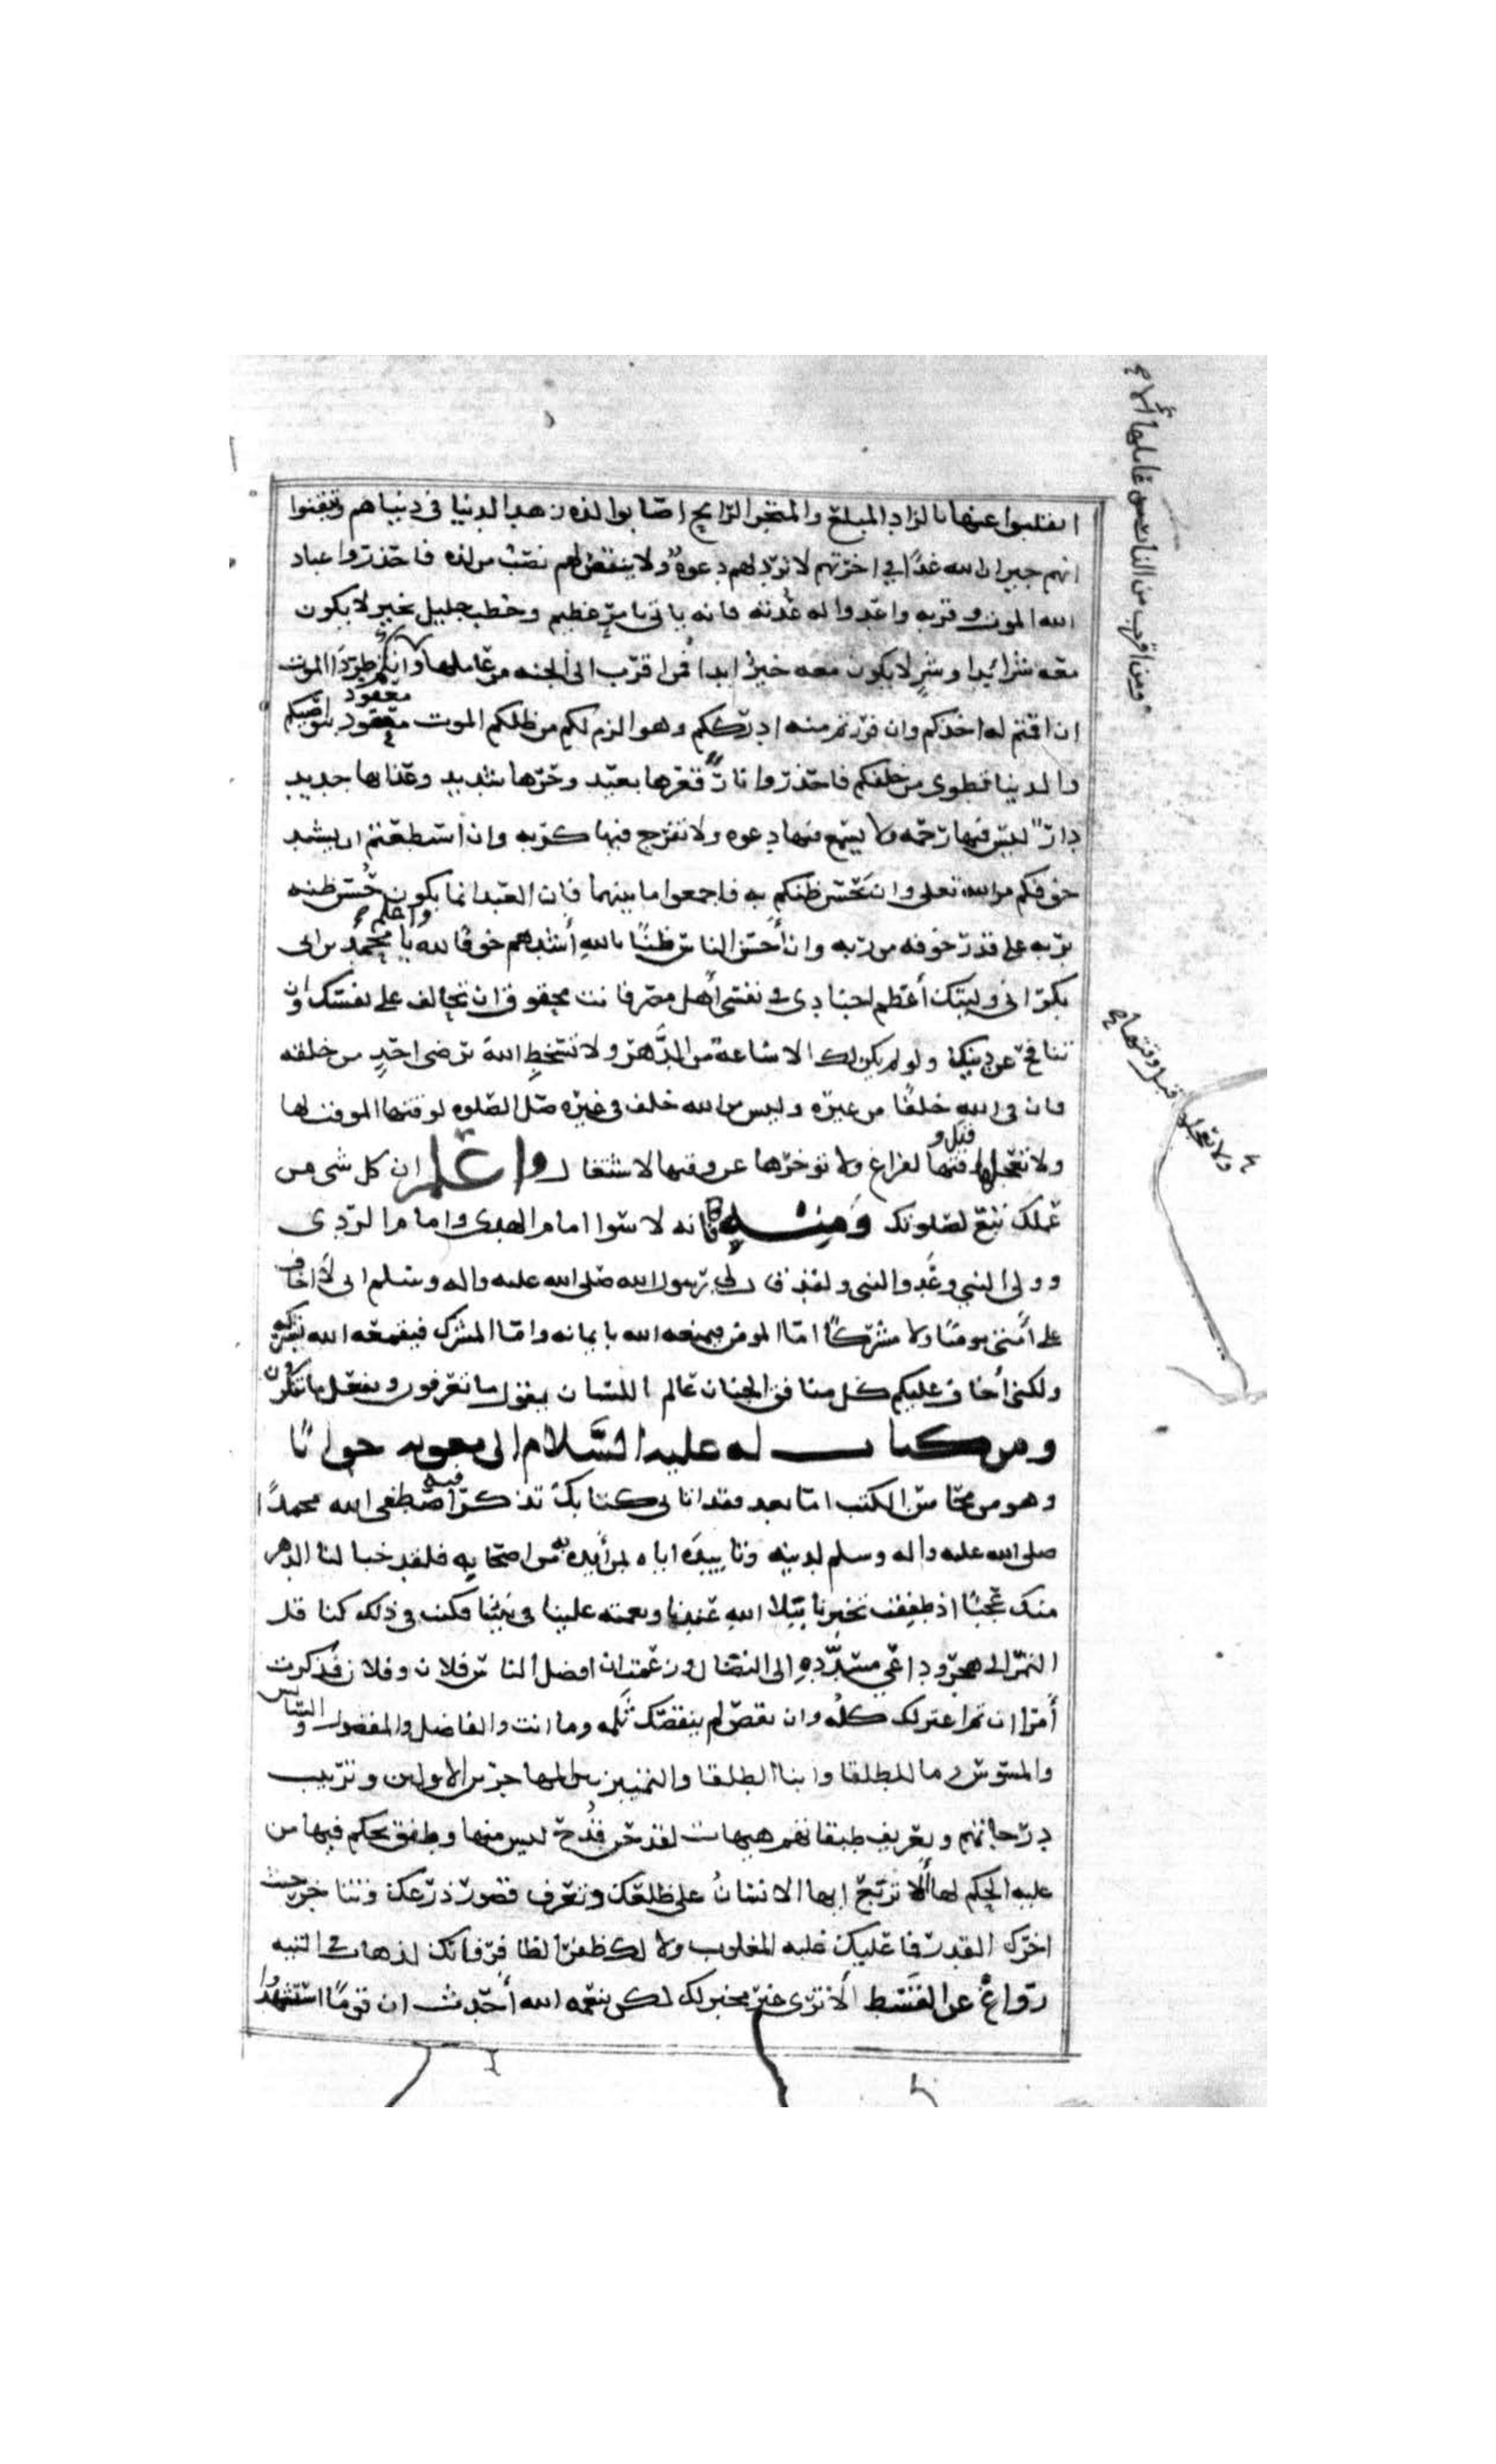 انقلبوا عنها بالزاد المبلغ والمتجر الرابح اصابوا لذه زهد الدنيا في دنياهم وتيقنوا
انهم جيران الله غدًا في اخرتهم لا تردّ لهم دعوة ولا ينقص لهم نصيب من لذه فاحذروا عباد
الله الموت وقربه واعدوا له عدته فانه ياتي بامر عظيم وخطب جليل بخير لا يكون
معه شر ابدا وشر لا يكون معه خير ابدا فمن اقرب الى الجنه من عاملها وانكم طردا الموت
ان اقمتم له اخذكم وان فررتم منه ادرككم وهو الزم لكم من ظلكم الموت معقود بنواصيكم
معقود
والدنيا تطوى من خلفكم فاحذروا نارًا قعرها بعيد وحرها شديد وعذابها جديد
دار ليس فيها رحمه ولا يسمع فيها دعوه ولا تفرج فيها كربه وان استطعتم ان يشتد
خوفكم من الله تعلى وان يحسن ظنكم به فاجمعوا ما بينهما فان العبد انما يكون حسن ظنه
بربه على قدر خوفه من ربه وان أحسن الناس ظنًا بالله أشدهم خوفًا لله واعلم يا محمد بن ابي
بكر اني وليتك أعظم اجنادي في نفسي أهل مصر فانت محقوق ان تخالف على نفسك وان
تنافح عن دينك ولو لم يكن لك الا ساعة من الدَّهر ولا تسخط الله برضى احدٍ من خلقه
فان في الله خلفًا من غيره وليس من الله خلف في غيره صل الصلوه لوقتها الموقت لها
ولا تعجل وقتها لفراغ ولا توخرها عن وقتها لاشتغال واعلم ان كل شي من
قبل و
عملك تبع لصلوتك ومنه فانه لا سوا امام الهدى وامام الردى
وولي النبي وعدو النبي ولقد قال لي رسول الله صلى الله عليه واله وسلم اني لا اخاف
على أمتي مومنًا ولا مشركًا امّا المومن فيمنعه الله بايمانه وامّا المشرك فيقمعه الله بشركه
ولكني أخاف عليكم كل منافق الجنان عالم اللسان يقول ما تعرفون ويفعل ما تنكرون
ومن كتاب له عليه السَّلام الى معويه جوابًا
وهو من محاسن الكتب امّا بعد فقد اتاني كتابك تذكر فيه اصطفى الله محمدًا
صلى الله عليه واله وسلم لدينه وتاييده اياه بمن أيده به من اصحابه فلقد خبا لنا الدهر
منك عجبًا اذ طفقت تخبرنا ببلا الله عندنا ونعمته علينا في نبينا فكنت في ذلك كناقل
التمر الى هجر وداعي مسدّده الى النضال وزعمت ان افضل الناس فلان وفلان فذكرت
أمرًا ان تم اعتزلك كله وان نقص لم ينقصك ثلمه وما انت والفاضل والمفضول والسايس
والمسوس وما للطلقا وابنا الطلقا والتمييز بين المهاجرين الاولين وترتيب
درجاتهم وتعريف طبقاتهم هيهات لقد حن قدح ليس منها وطفق يحكم فيها من
عليه الحكم لها ألا تربع ايها الانسان على ظلعك وتعرف قصور ذرعك وتتاخر حيث
اخرك القدر فما عليك غلبه المغلوب ولا لك ظفر الظافر فانك لذهاب في التيه
روّاغ عن القصد الا ترى غير مخبر لك لكن بنعمه الله أحدث ان قومًا استشهدوا
ومن اقرب من النار من عاملها
ولا تعجل قبل وقتها